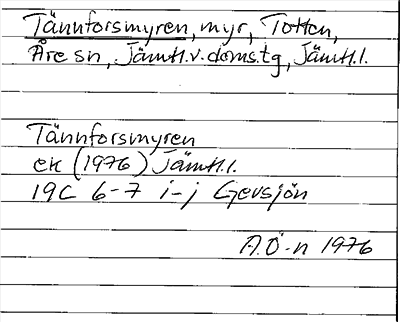 Tännforsmyren, myr, Totten,
Åre sn, Jämtl.v.doms.tg, Jämtl.l.
Tännforsmyren
ek (1976) Jämtl.l.
19C 6-7 i-j Gevsjön
A.Ö-n 1976